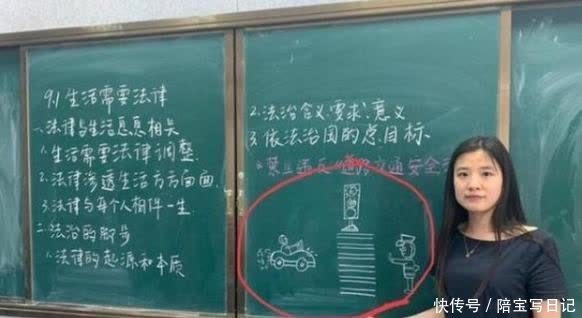 9.1 生活需要法律
一、法律与生活息息相关
1. 生活需要法律调整.
2. 法律渗透生活方方面面.
3. 法律与每个人相伴一生.
二、法治的脚步
1. 法律的起源和本质
2. 法治含义、要求、意义
3. 依法治国的总目标
交通安全
快传号／陪宝写日记